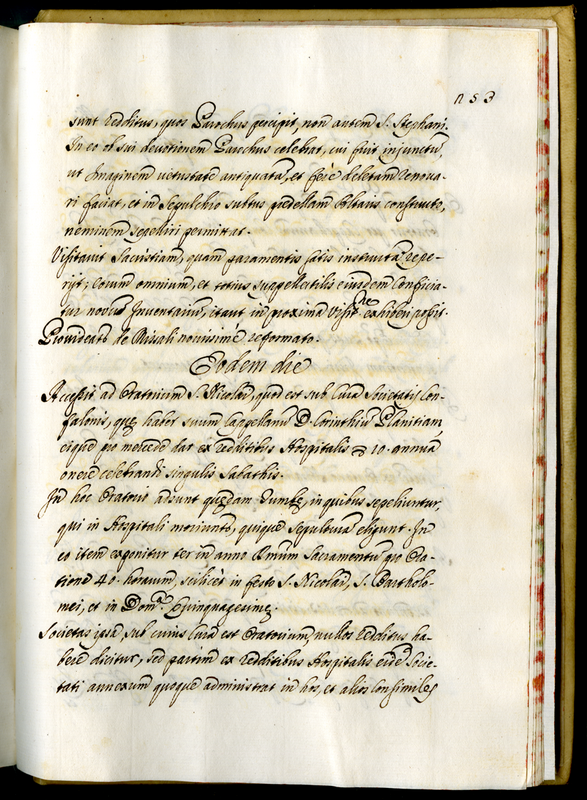 253
sunt redditus, quos Parochus percipit, non autem S. Stephani.
In eo ob sui devotionem Parochus celebrat, cui fuit injunctũ,
ut Imaginem vetustate antiquatã, et fere deletam renova-
ri faciat, et in Sepulchro subtus predellam Altaris constructo,
neminem sepelliri permittat.
Visitavit Sacristiam, quam paramentis satis instructã repe-
rijt; eorum omnium, et totius suppellectilis eiusdem conficia-
tur novus Inventariũ, itaut in proxima Visitne exhiberi possit.
Provideat de Missali novissime reformato.
Eodem die
Accessit ad Oratorium S. Nicolai, quod est sub Cura Societatis Con-
falonis, quę habet suum Cappellanũ D. Corinthiũ Planitiam
eique pro mercede dat ex redditibus Hospitalis 10. annua
onere celebrandi singulis Sabathis.
In hoc Oratorio adsunt quędam Tumbę, in quibus sepeliuntur,
qui in Hospitali moriunt, quique sepulturã eligunt. In
eo item exponitur ter in anno Smũm Sacramentũ pro Ora-
tione 40. horarum, scilicet in festo S. Nicolai, S. Bartholo-
mei, et in Domca Quinquagesimę.
Societas ipsa, sub cuius Cura est Oratorium, nullos redditus ha-
bere dicitur, sed partim ex redditibus Hospitalis eidẽ Socie-
tati annexum quoque administrat in hos, et alios consimiles